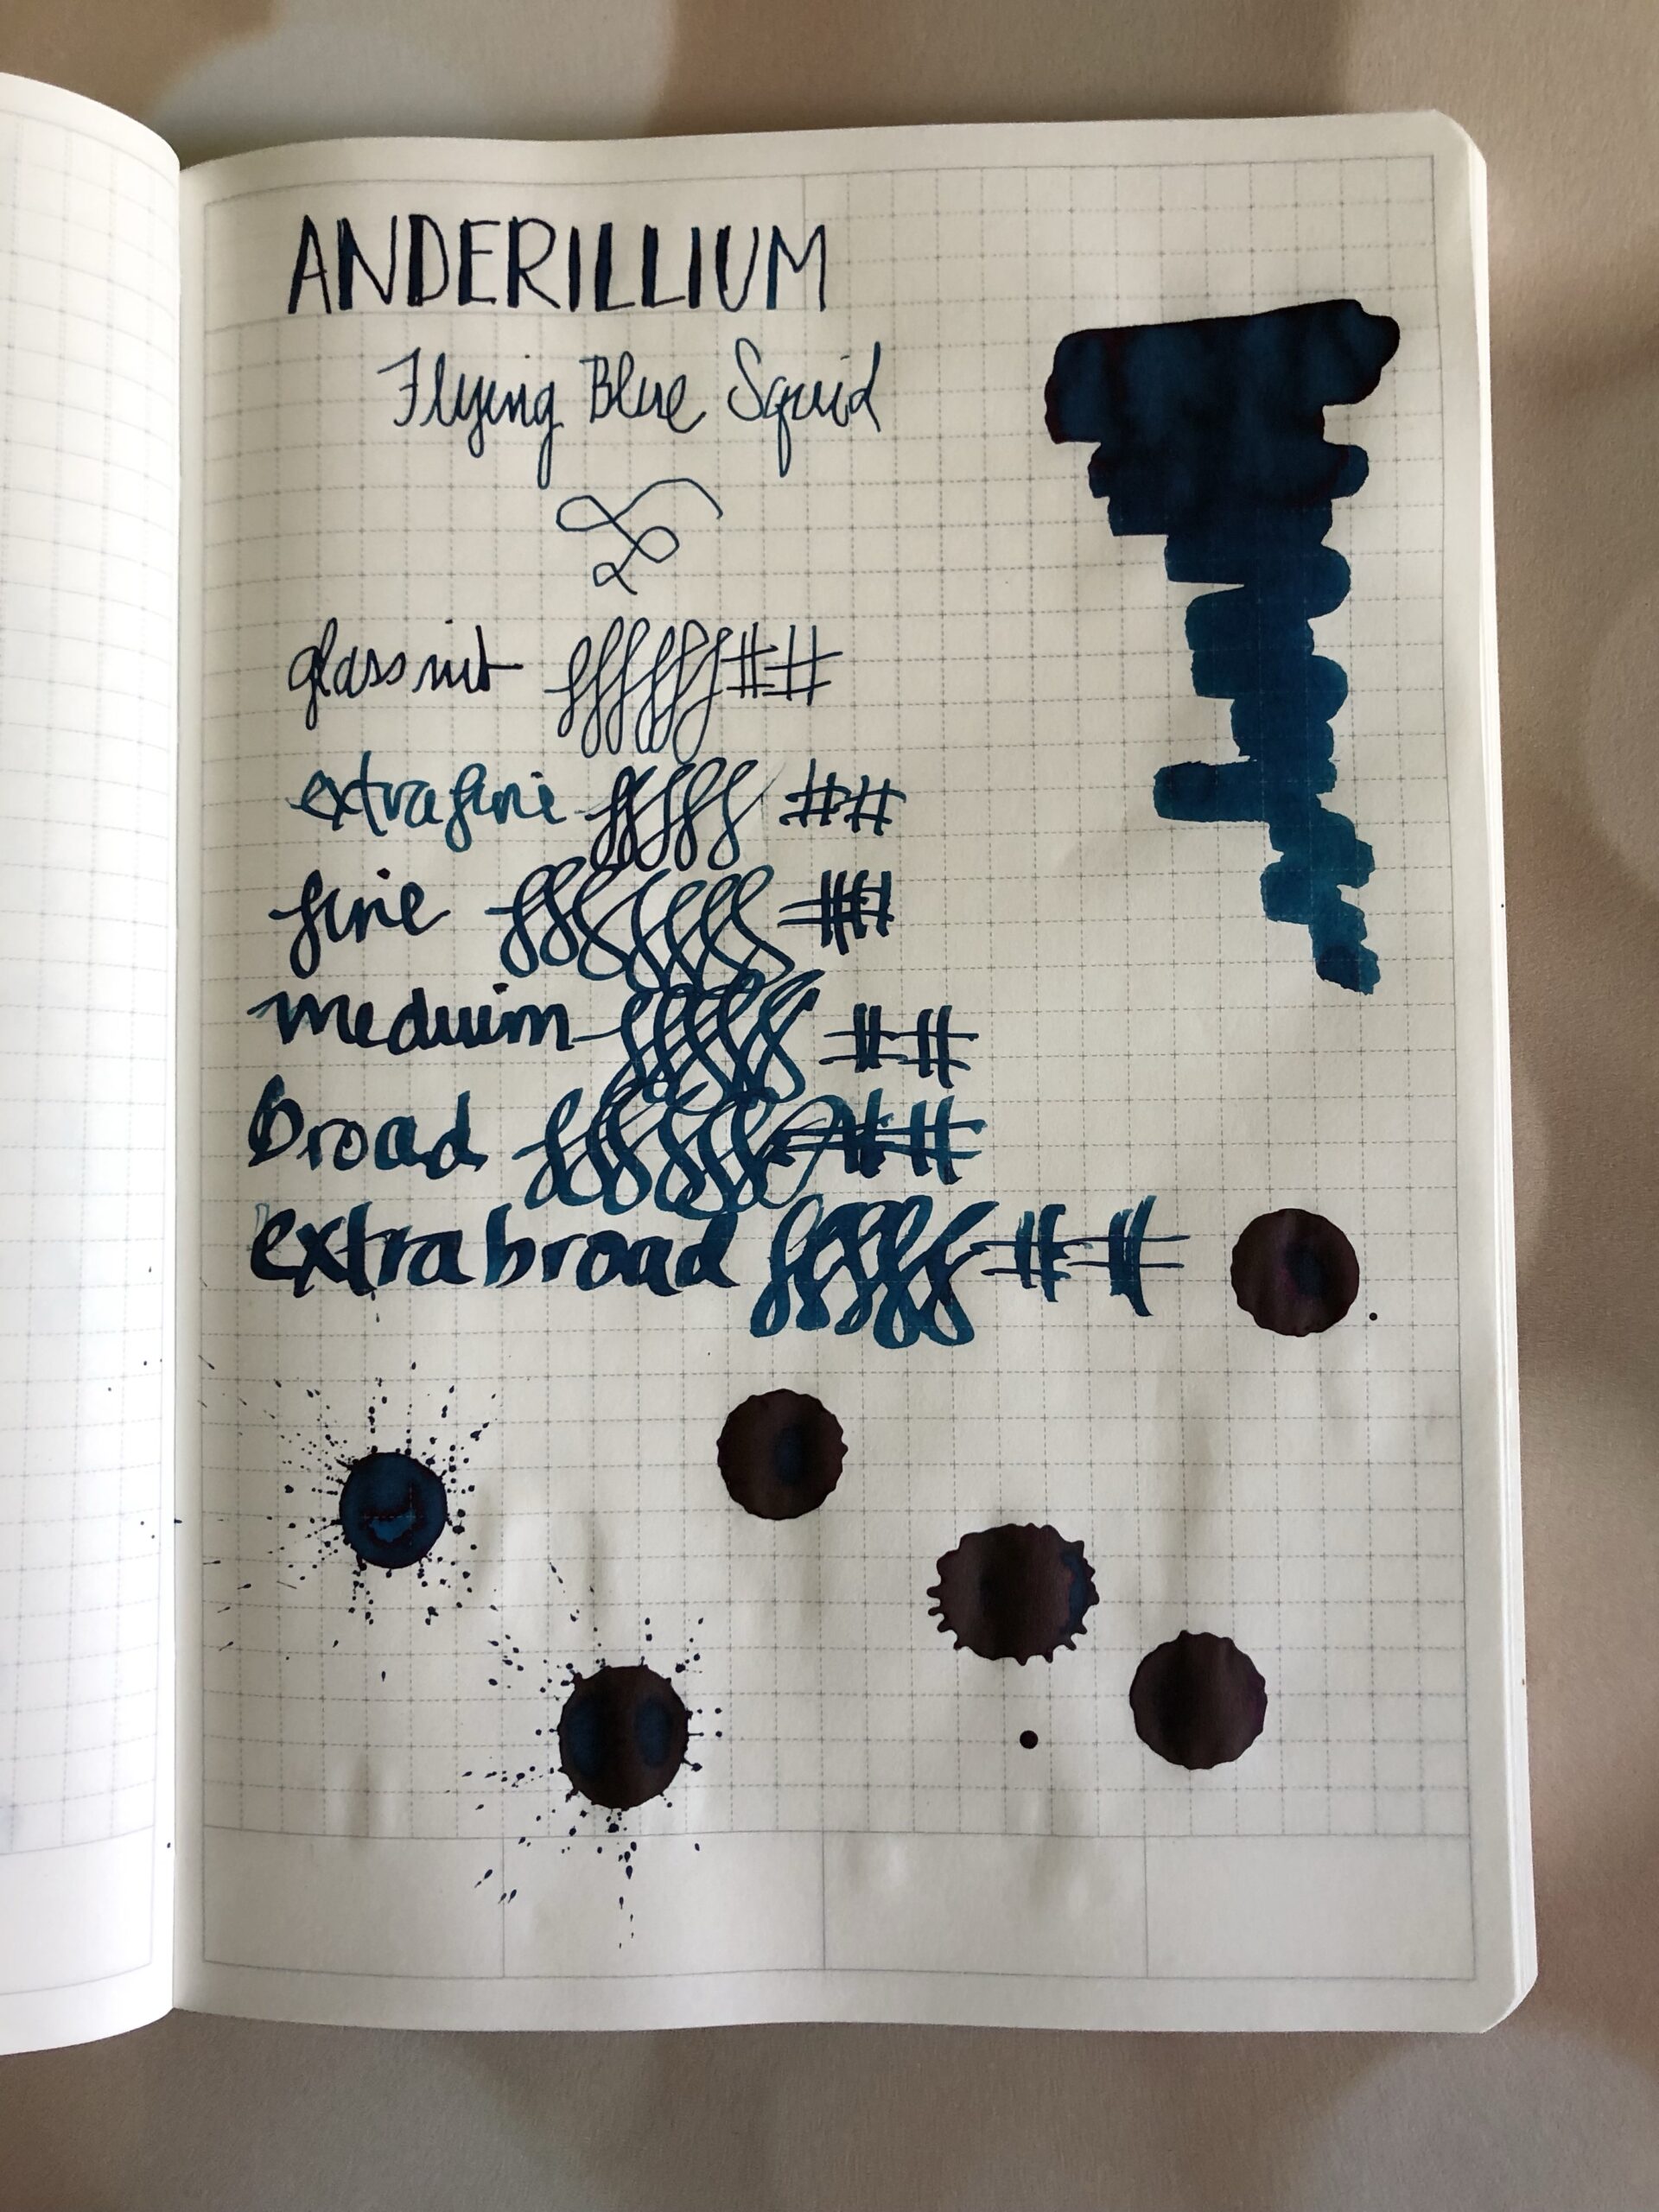 ANDERILLIUM
Flying Blue Squid
glass nib
extra fine
fine
meduim
Broad
extra broad